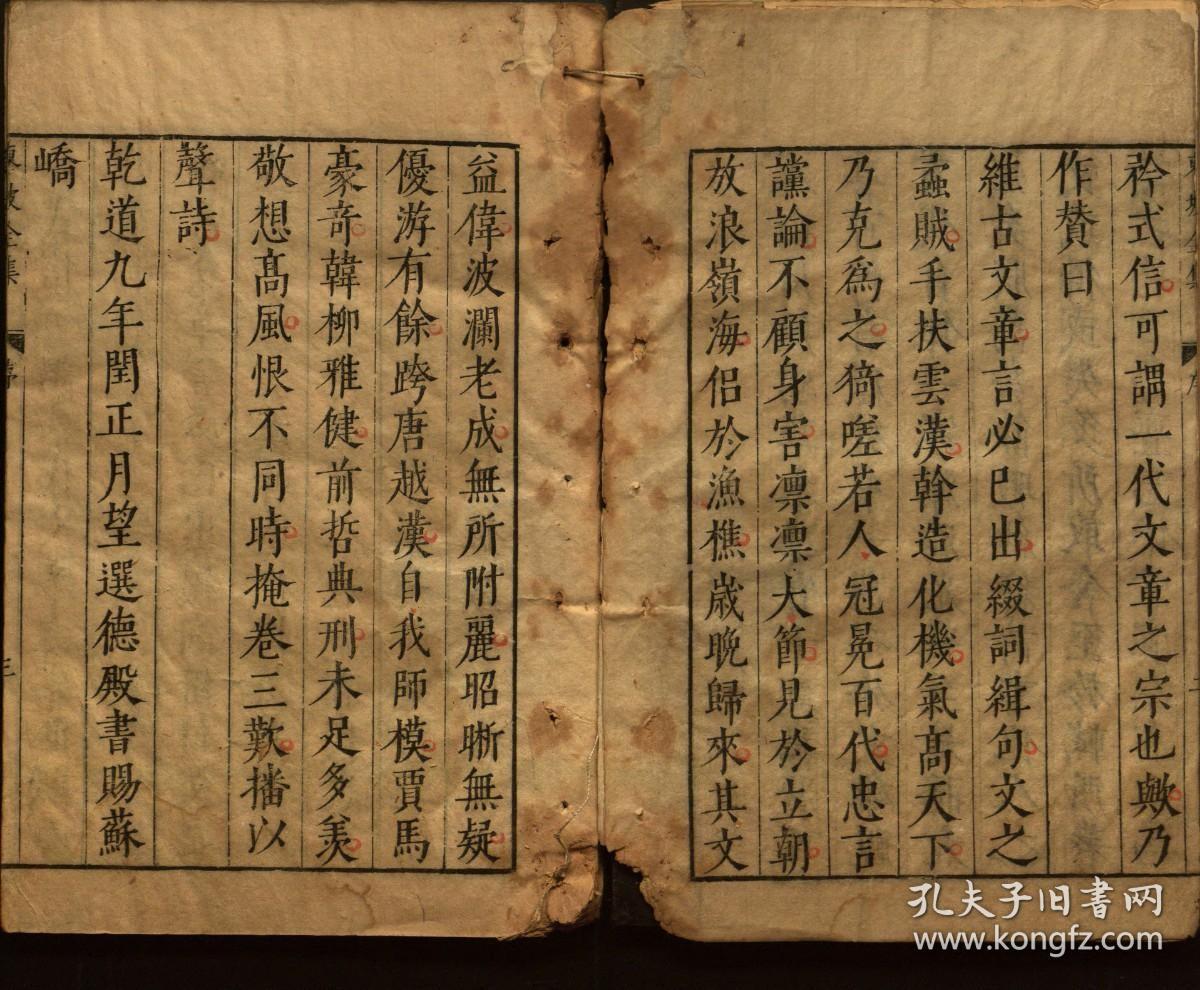 矜式信可謂一代文章之宗也歟乃
作賛曰
維古文章言必巳出綴詞緝句文之
蟊賊手扶雲漢斡造化機氣髙天下
乃克爲之猗嗟若人冠冕百代忠言
讜論不顧身害凛凛大節見於立朝
放浪嶺海侣於漁樵歲晚歸來其文
益偉波瀾老成無所附麗昭晰無疑
優游有餘跨唐越漢自我師模賈馬
豪竒韓柳雅健前哲典刑未足多羨
敬想髙風恨不同時掩卷三歎播以
聲詩
乾道九年閏正月望選德殿書賜蘇
嶠
孔夫子旧书网
www.kongfz.com